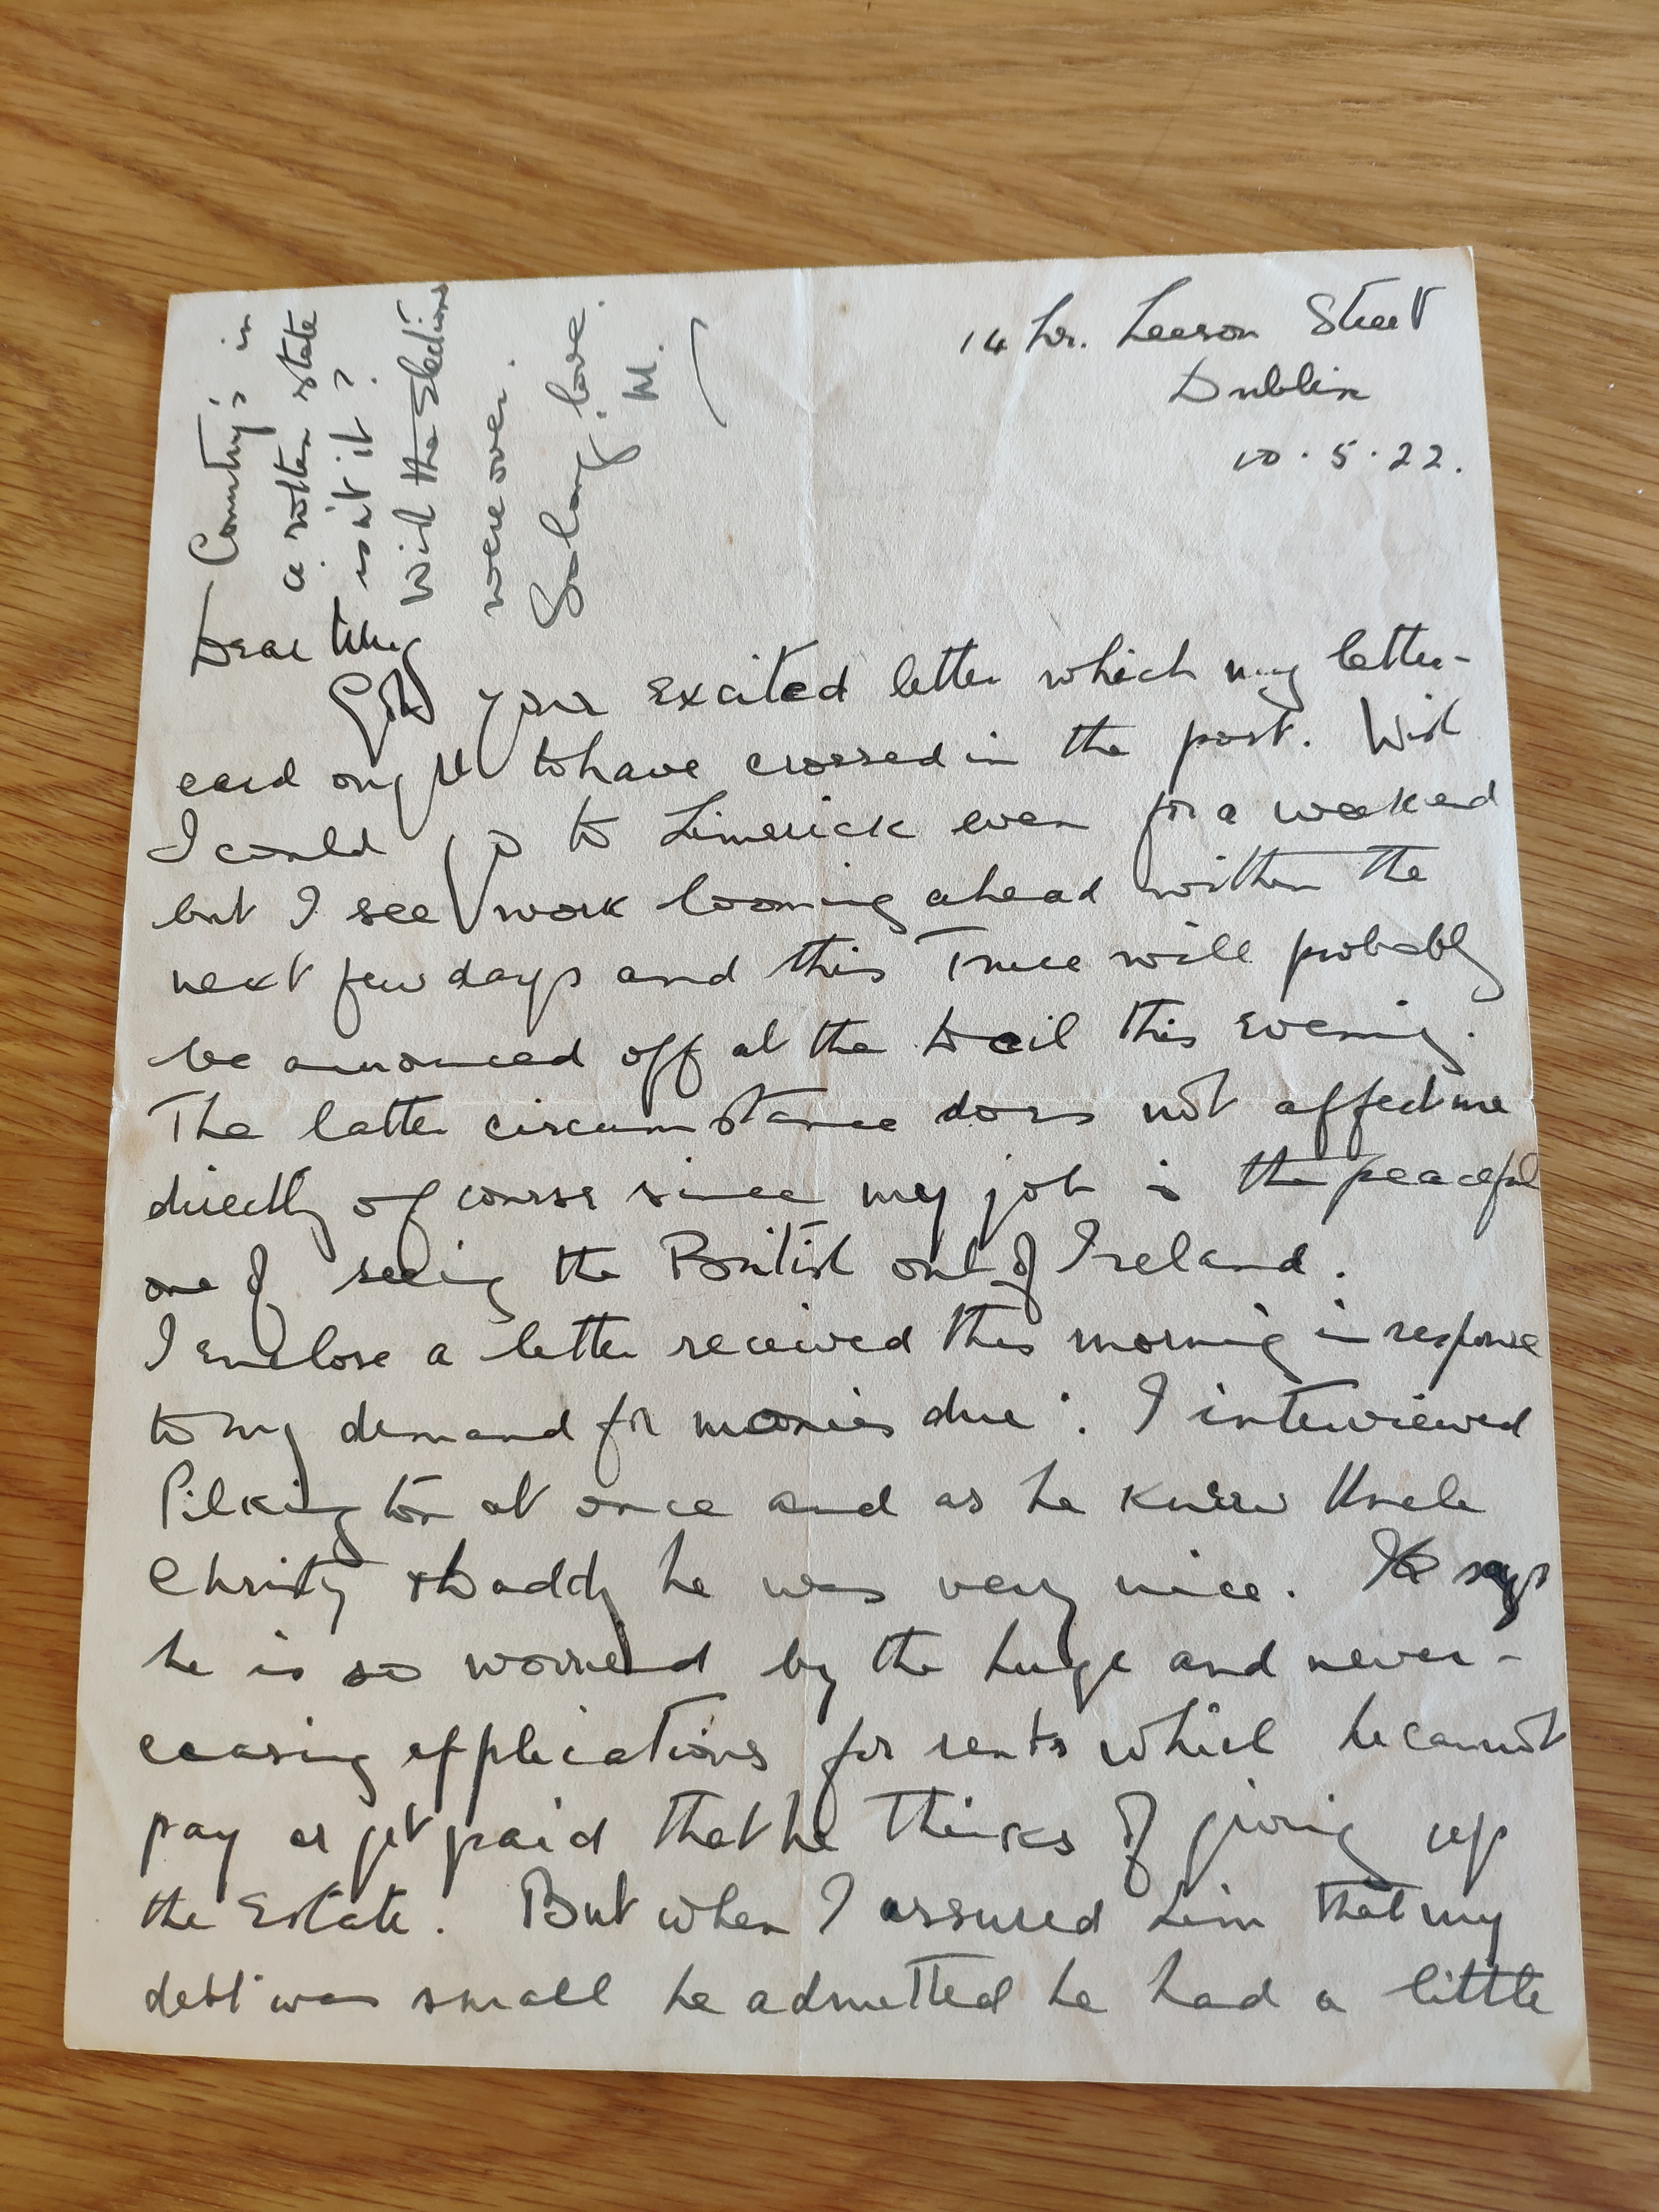 14 Lr. Leeson Street
Dublin
10.5.22.
Country's in
a rotten state
isn't it?
Wish the Elections
were over.
So long. love.
M.
Dear
Got your excited letter which my letter-
card ought to have crossed in the post. Wish
I could go to Limerick even for a weekend
but I see work looming ahead within the
next few days and this Truce will probably
be announced off at the Dail this evening.
The latter circumstance does not affect me
directly of course since my job is the peaceful
one of seeing the British out of Ireland.
I enclose a letter received this morning in response
to my demand for monies due. I interviewed
Pilkington at once and as he knew Uncle
Christy & Daddy he was very nice. He says
he is so worried by the huge and never-
ceasing applications for rents which he cannot
pay or get paid that he thinks of giving up
the Estate. But when I assured him that my
debt was small he admitted he had a little